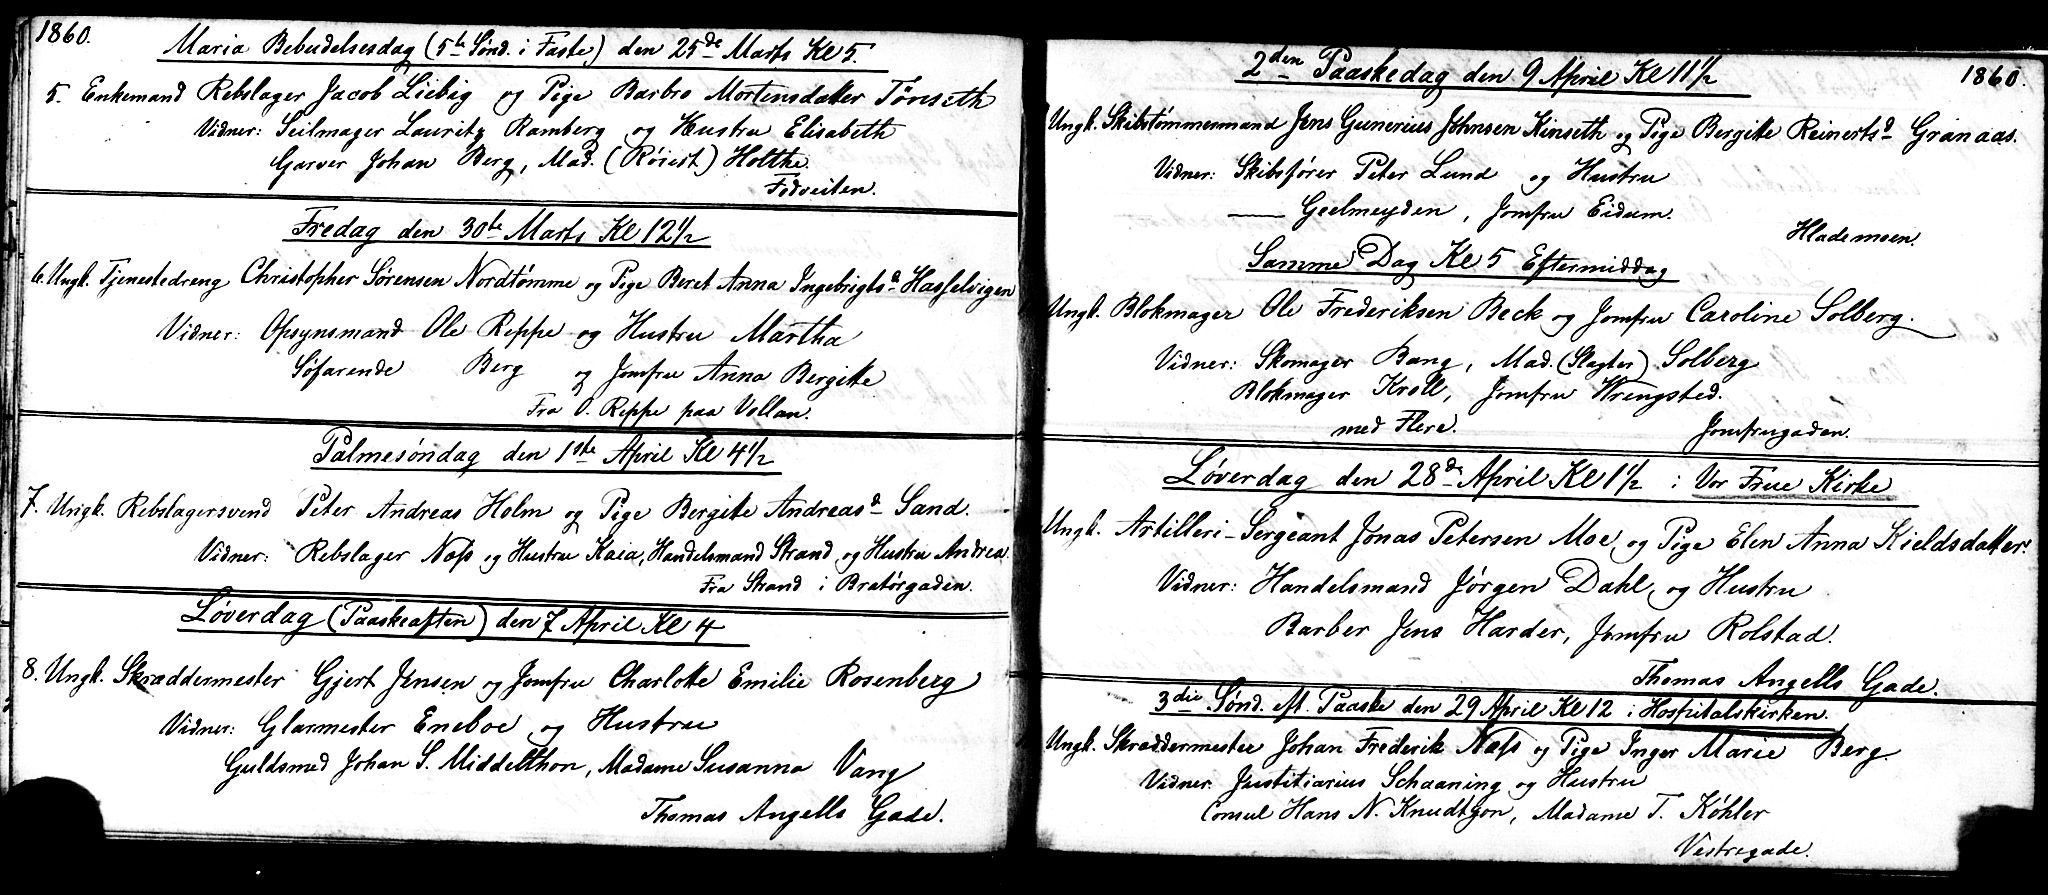 1860.
Maria Bebudelsesdag (5te Sønd. i Faste) den 25de Marts Kl 5.
5. Enkemand Rebslager Jacob Liebig og Pige Barbro Mortensdatter Tønseth
Vidner: Seilmager Lauritz Ramberg og Hustru Elisabeth
Garver Johan Berg, Mad. (Røiert) Holthe
Fedveiten.
Fredag den 30te Marts Kl 12 1/2
6. Ungk. Tjenestedreng Christopher Sørensen Nordtømme og Pige Beret Anna Ingebrigtsd Hasselvigen
Vidner: Opsynsmand Ole Reppe og Hustru Martha
Søfarende Berg og Jomfru Anna Bergitte
Fra O. Reppe paa Vollan.
Palmesøndag den 1ste April Kl 4 1/2
7. Ungk. Rebslagersvend Peter Andreas Holm og Pige Bergitte Andreasd Sand.
Vidner: Rebslager Næss og Hustru Kaia, Handelsmand Strand og Hustru Andrea
Fra Strand i Bratørgaden.
Løverdag (Paaskeaften) den 7 April Kl 4
8. Ungk. Skræddermester Gjert Jensen og Jomfru Charlotte Emilie Rosenberg
Vidner: Glarmester Eneboe og Hustru
Guldsmed Johan S. Middelthon, Madame Susanna Vang
Thomas Angells Gade.
2den Paaskedag den 9 April Kl 11 1/2
1860.
Ungk. Skibstømmermand Jens Gunerius Johnsen Kinseth og Pige Bergitte Reinertsd Granaas.
Vidner: Skibsfører Peter Lund og Hustru
— Geelmeyden, Jomfru Eidum.
Hlademoen.
Samme Dag Kl 5 Eftermiddag
Ungk. Blokmager Ole Frederiksen Beck og Jomfru Caroline Solberg.
Vidner: Skomager Bang, Mad. (Slagter) Solberg
Blokmager Kroll, Jomfru Wrengsted.
med Flere.
Jomfrugaden.
Løverdag den 28de April Kl 1 1/2 i Vor Frue Kirke
Ungk. Artilleri-Sergeant Jonas Petersen Moe og Pige Elen Anna Kieldsdatter.
Vidner: Handelsmand Jørgen Dahl og Hustru
Barber Jens Harder, Jomfru Rolstad.
Thomas Angells Gade.
3die Sønd. eft. Paaske den 29 April Kl 12 i Hospitalskirken.
Ungk. Skræddermester Johan Frederik Næss og Pige Inger Marie Berg.
Vidner. Justitiarius Schaaning og Hustru
Consul Hans N. Knudtzon, Madame T. Køhler
Vestregade.